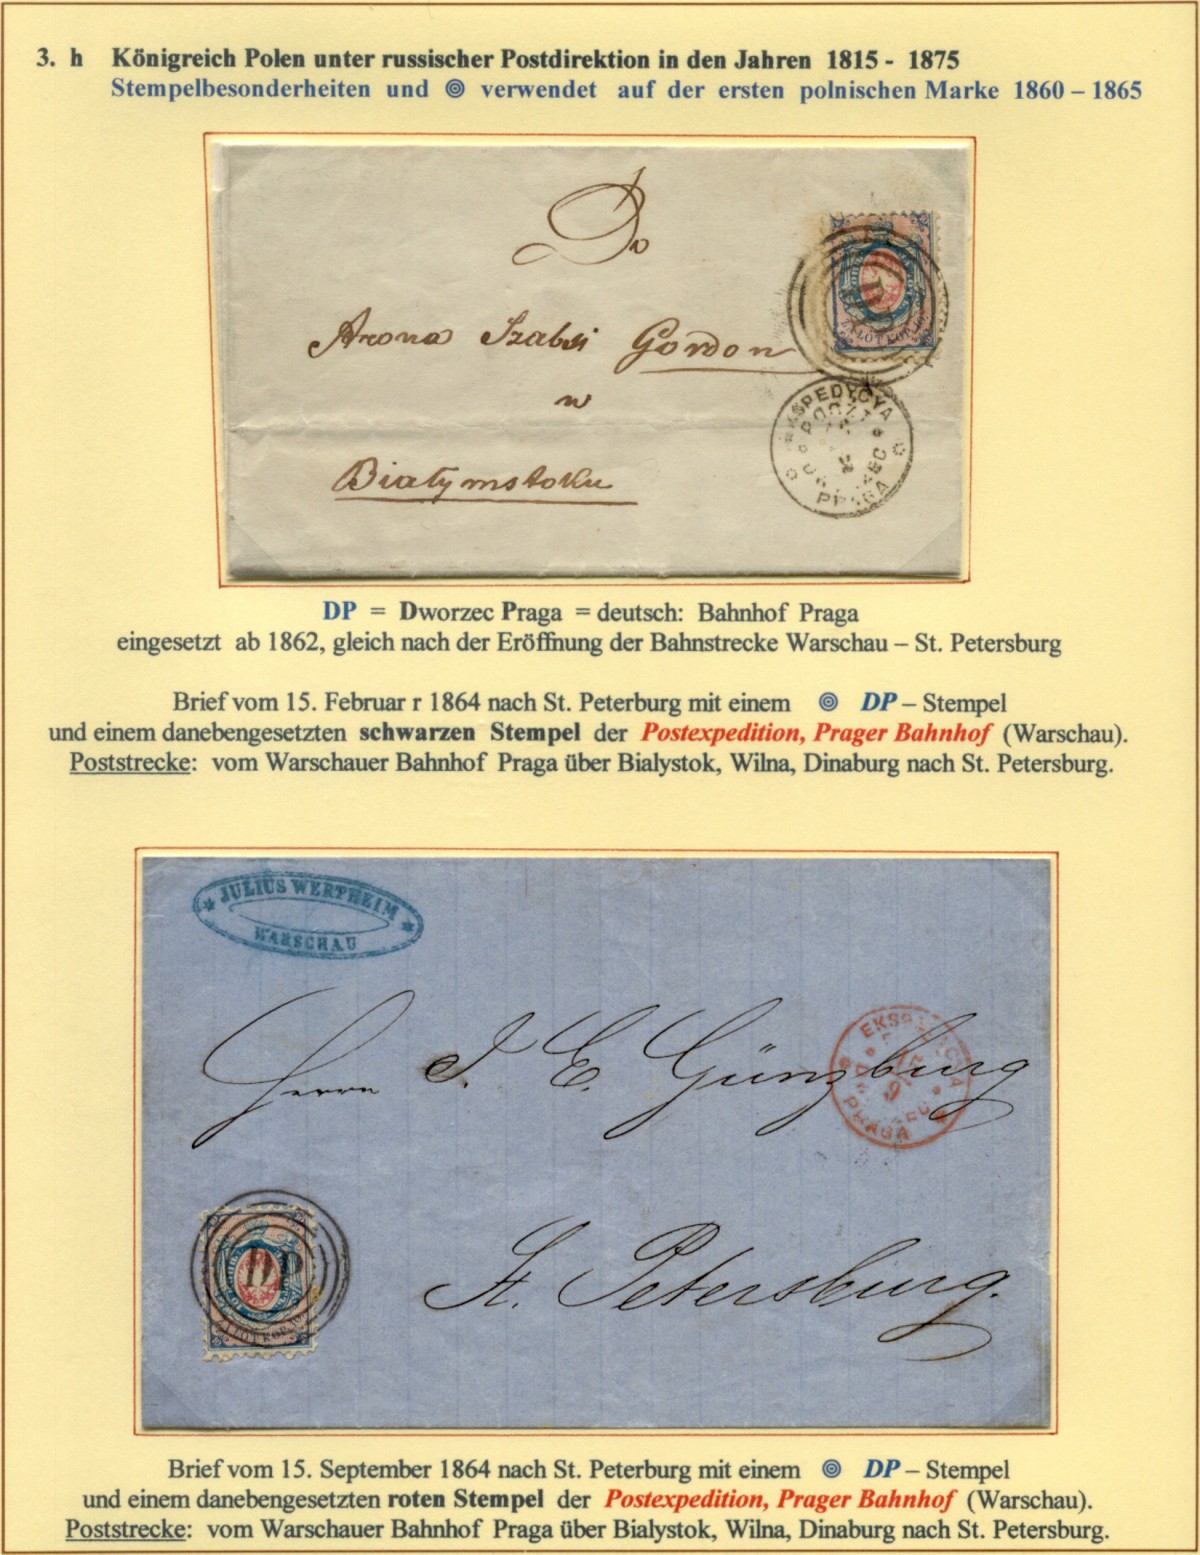 3. h Königreich Polen unter russischer Postdirektion in den Jahren 1815 - 1875
Stempelbesonderheiten und verwendet auf der ersten polnischen Marke 1860 – 1865
Do
Arona Szabsi Gordon
w
Białymstoku
DP
ZA ŁÓT KOP. 10
EKSPEDYCYA
POCZT
PRAGA
DP = Dworzec Praga = deutsch: Bahnhof Praga
eingesetzt ab 1862, gleich nach der Eröffnung der Bahnstrecke Warschau – St. Petersburg
Brief vom 15. Februar r 1864 nach St. Peterburg mit einem DP – Stempel
und einem danebengesetzten schwarzen Stempel der Postexpedition, Prager Bahnhof (Warschau).
Poststrecke: vom Warschauer Bahnhof Praga über Bialystok, Wilna, Dinaburg nach St. Petersburg.
JULIUS WERTHEIM
WARSCHAU
Herrn J. E. Günzburg
EKSPEDYCYA
PRAGA
St. Petersburg.
DP
ZA ŁÓT KOP. 10
Brief vom 15. September 1864 nach St. Peterburg mit einem DP – Stempel
und einem danebengesetzten roten Stempel der Postexpedition, Prager Bahnhof (Warschau).
Poststrecke: vom Warschauer Bahnhof Praga über Bialystok, Wilna, Dinaburg nach St. Petersburg.